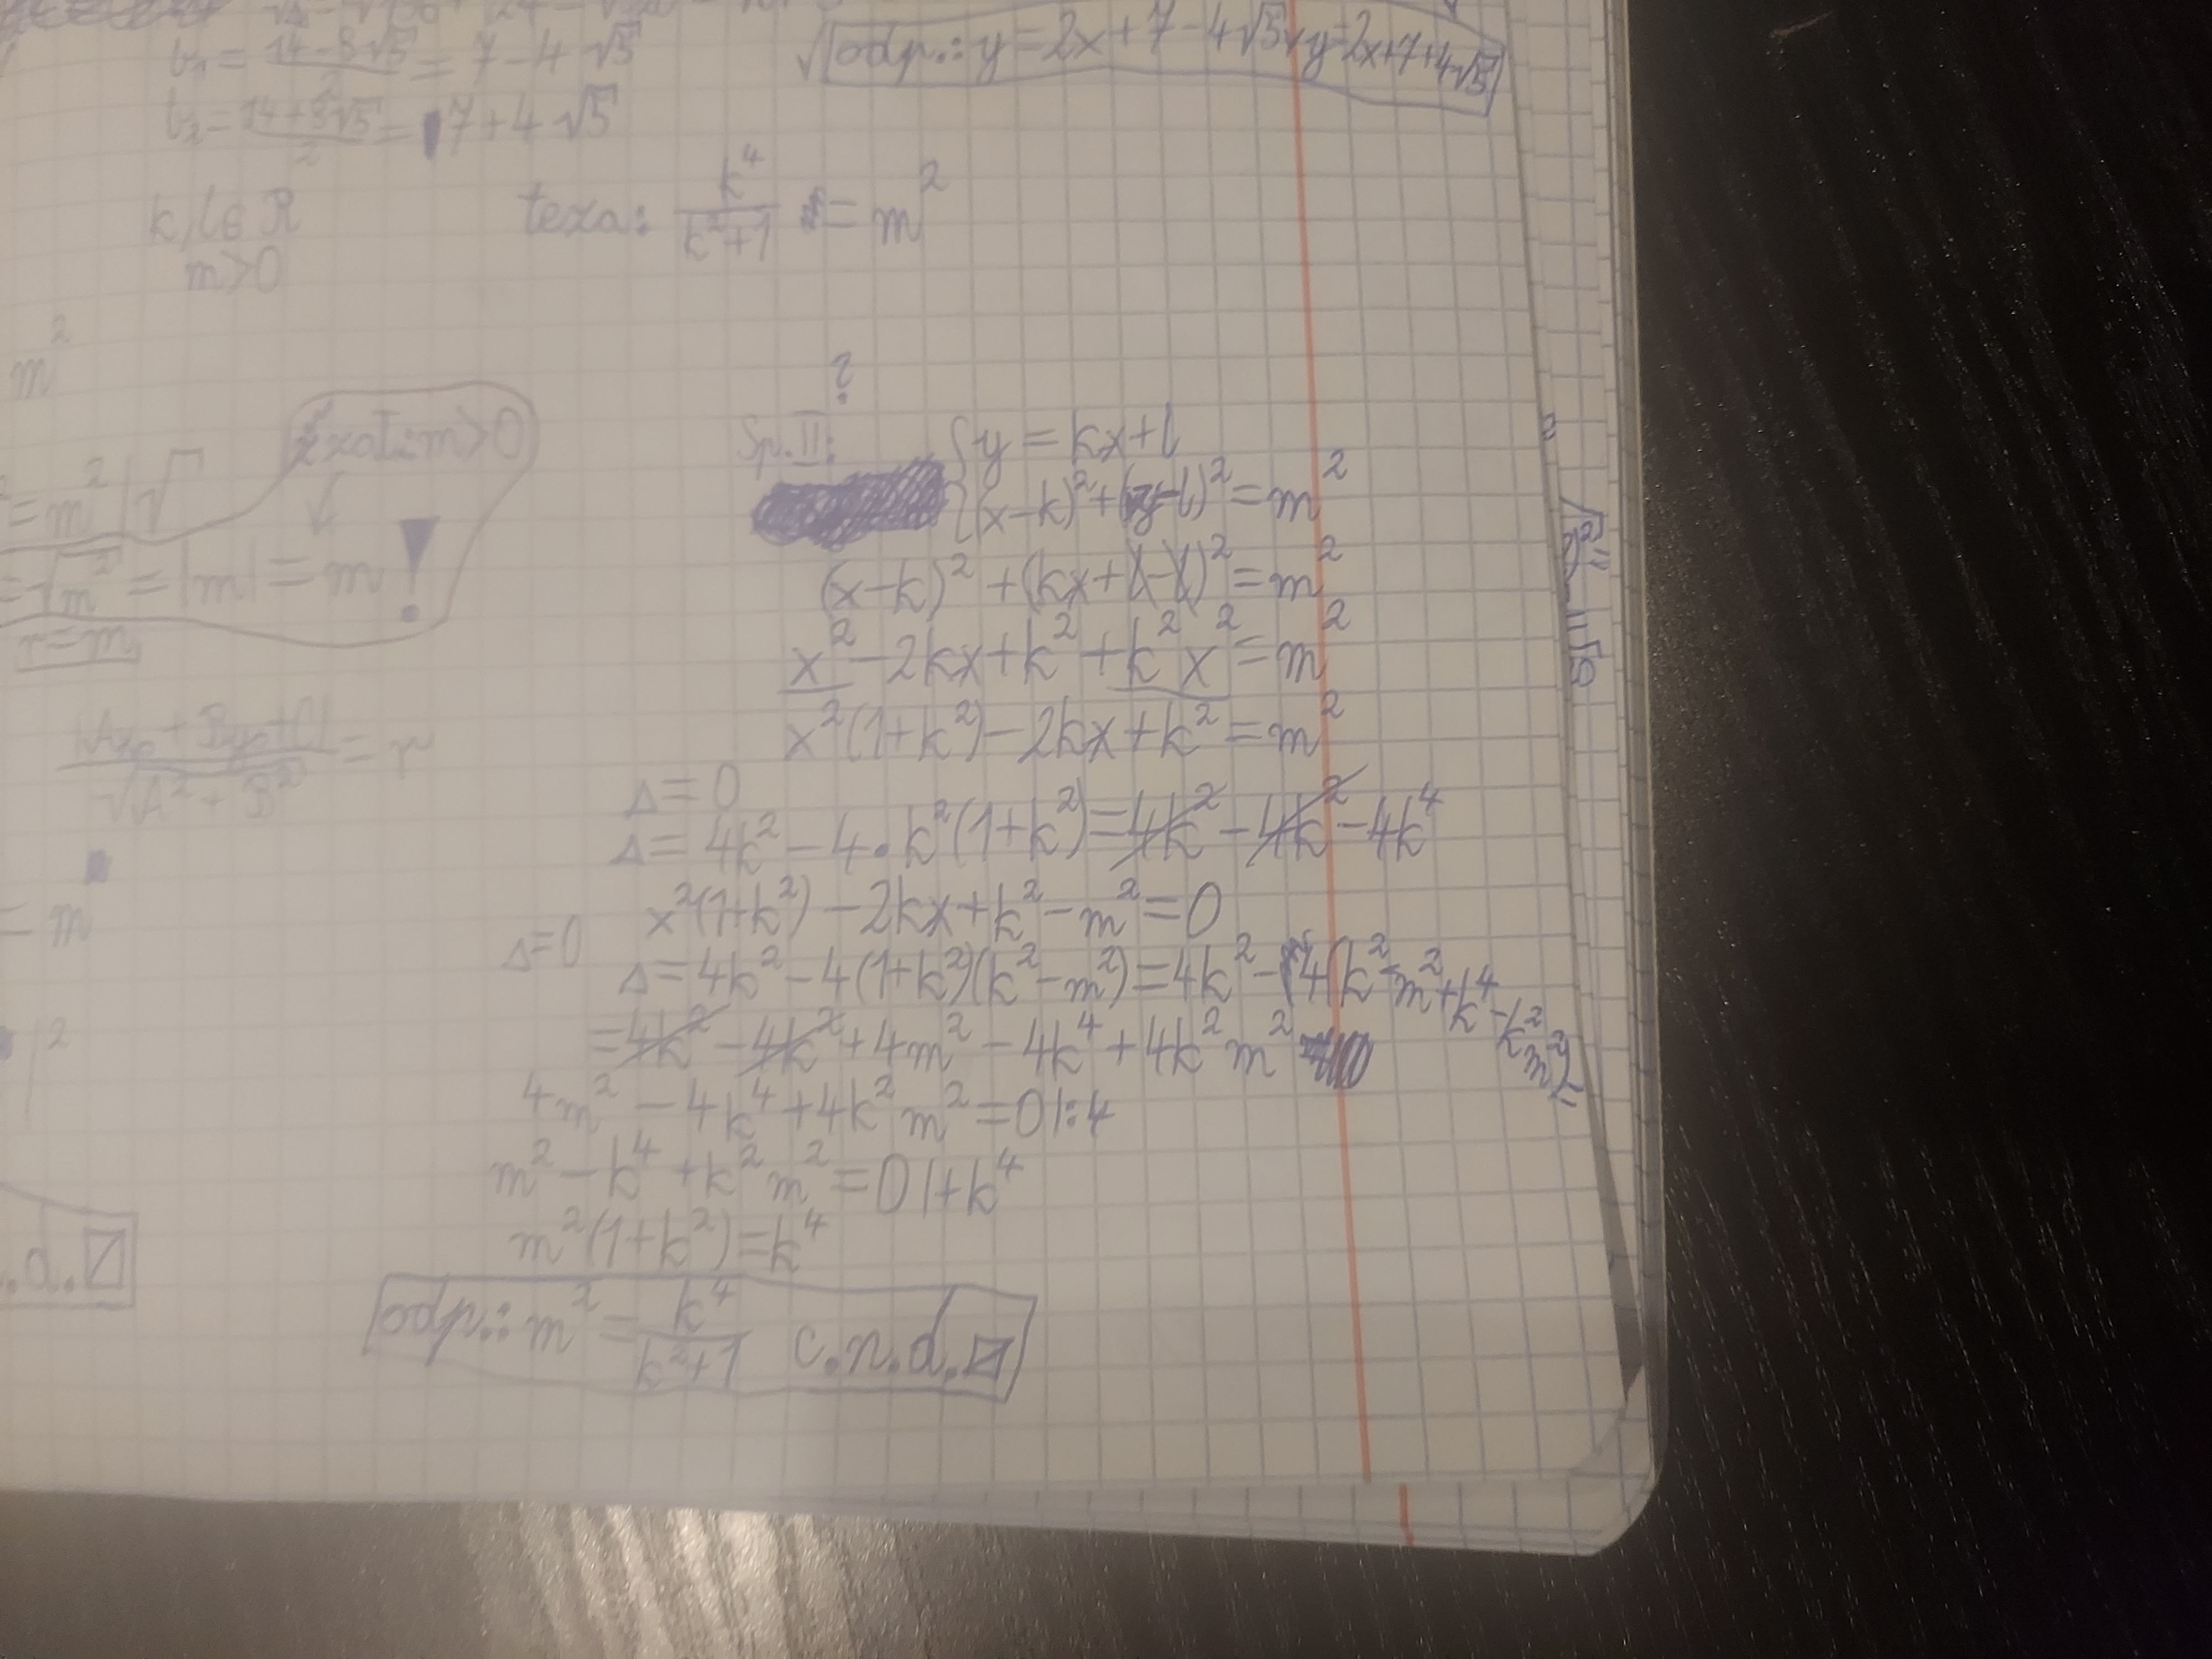 b₁ = \frac{14-8√5}{2} = 7-4√5
b₂ = \frac{14+8√5}{2} = 7+4√5
odp.: y=2x+7-4√5 ∨ y=2x+7+4√5
k, l ∈ R
m>0
teza: \frac{k⁴}{k²+1} = m²
m²
z zał.: m>0
= m² |√
= √m² = |m| = m !
r=m
\frac{|Ax₀+By₀+C|}{√A²+B²} = r
= m
|²
.d. ☑
?
Sp. II: { y = kx+l
{ (x-k)²+(y-l)² = m²
(x-k)² + (kx+l-l)² = m²
x² - 2kx + k² + k²x² = m²
x²(1+k²) - 2kx + k² = m²
Δ = 0
Δ = 4k² - 4·k²(1+k²) = 4k² - 4k² - 4k⁴
x²(1+k²) - 2kx + k² - m² = 0
Δ=0
Δ = 4k² - 4(1+k²)(k²-m²) = 4k² - 4(k²-m²+k⁴-k²m²) =
= 4k² - 4k² + 4m² - 4k⁴ + 4k²m²
4m² - 4k⁴ + 4k²m² = 0 |:4
m² - k⁴ + k²m² = 0 |+k⁴
m²(1+k²) = k⁴
odp.: m² = \frac{k⁴}{k²+1} c.n.d. ☑